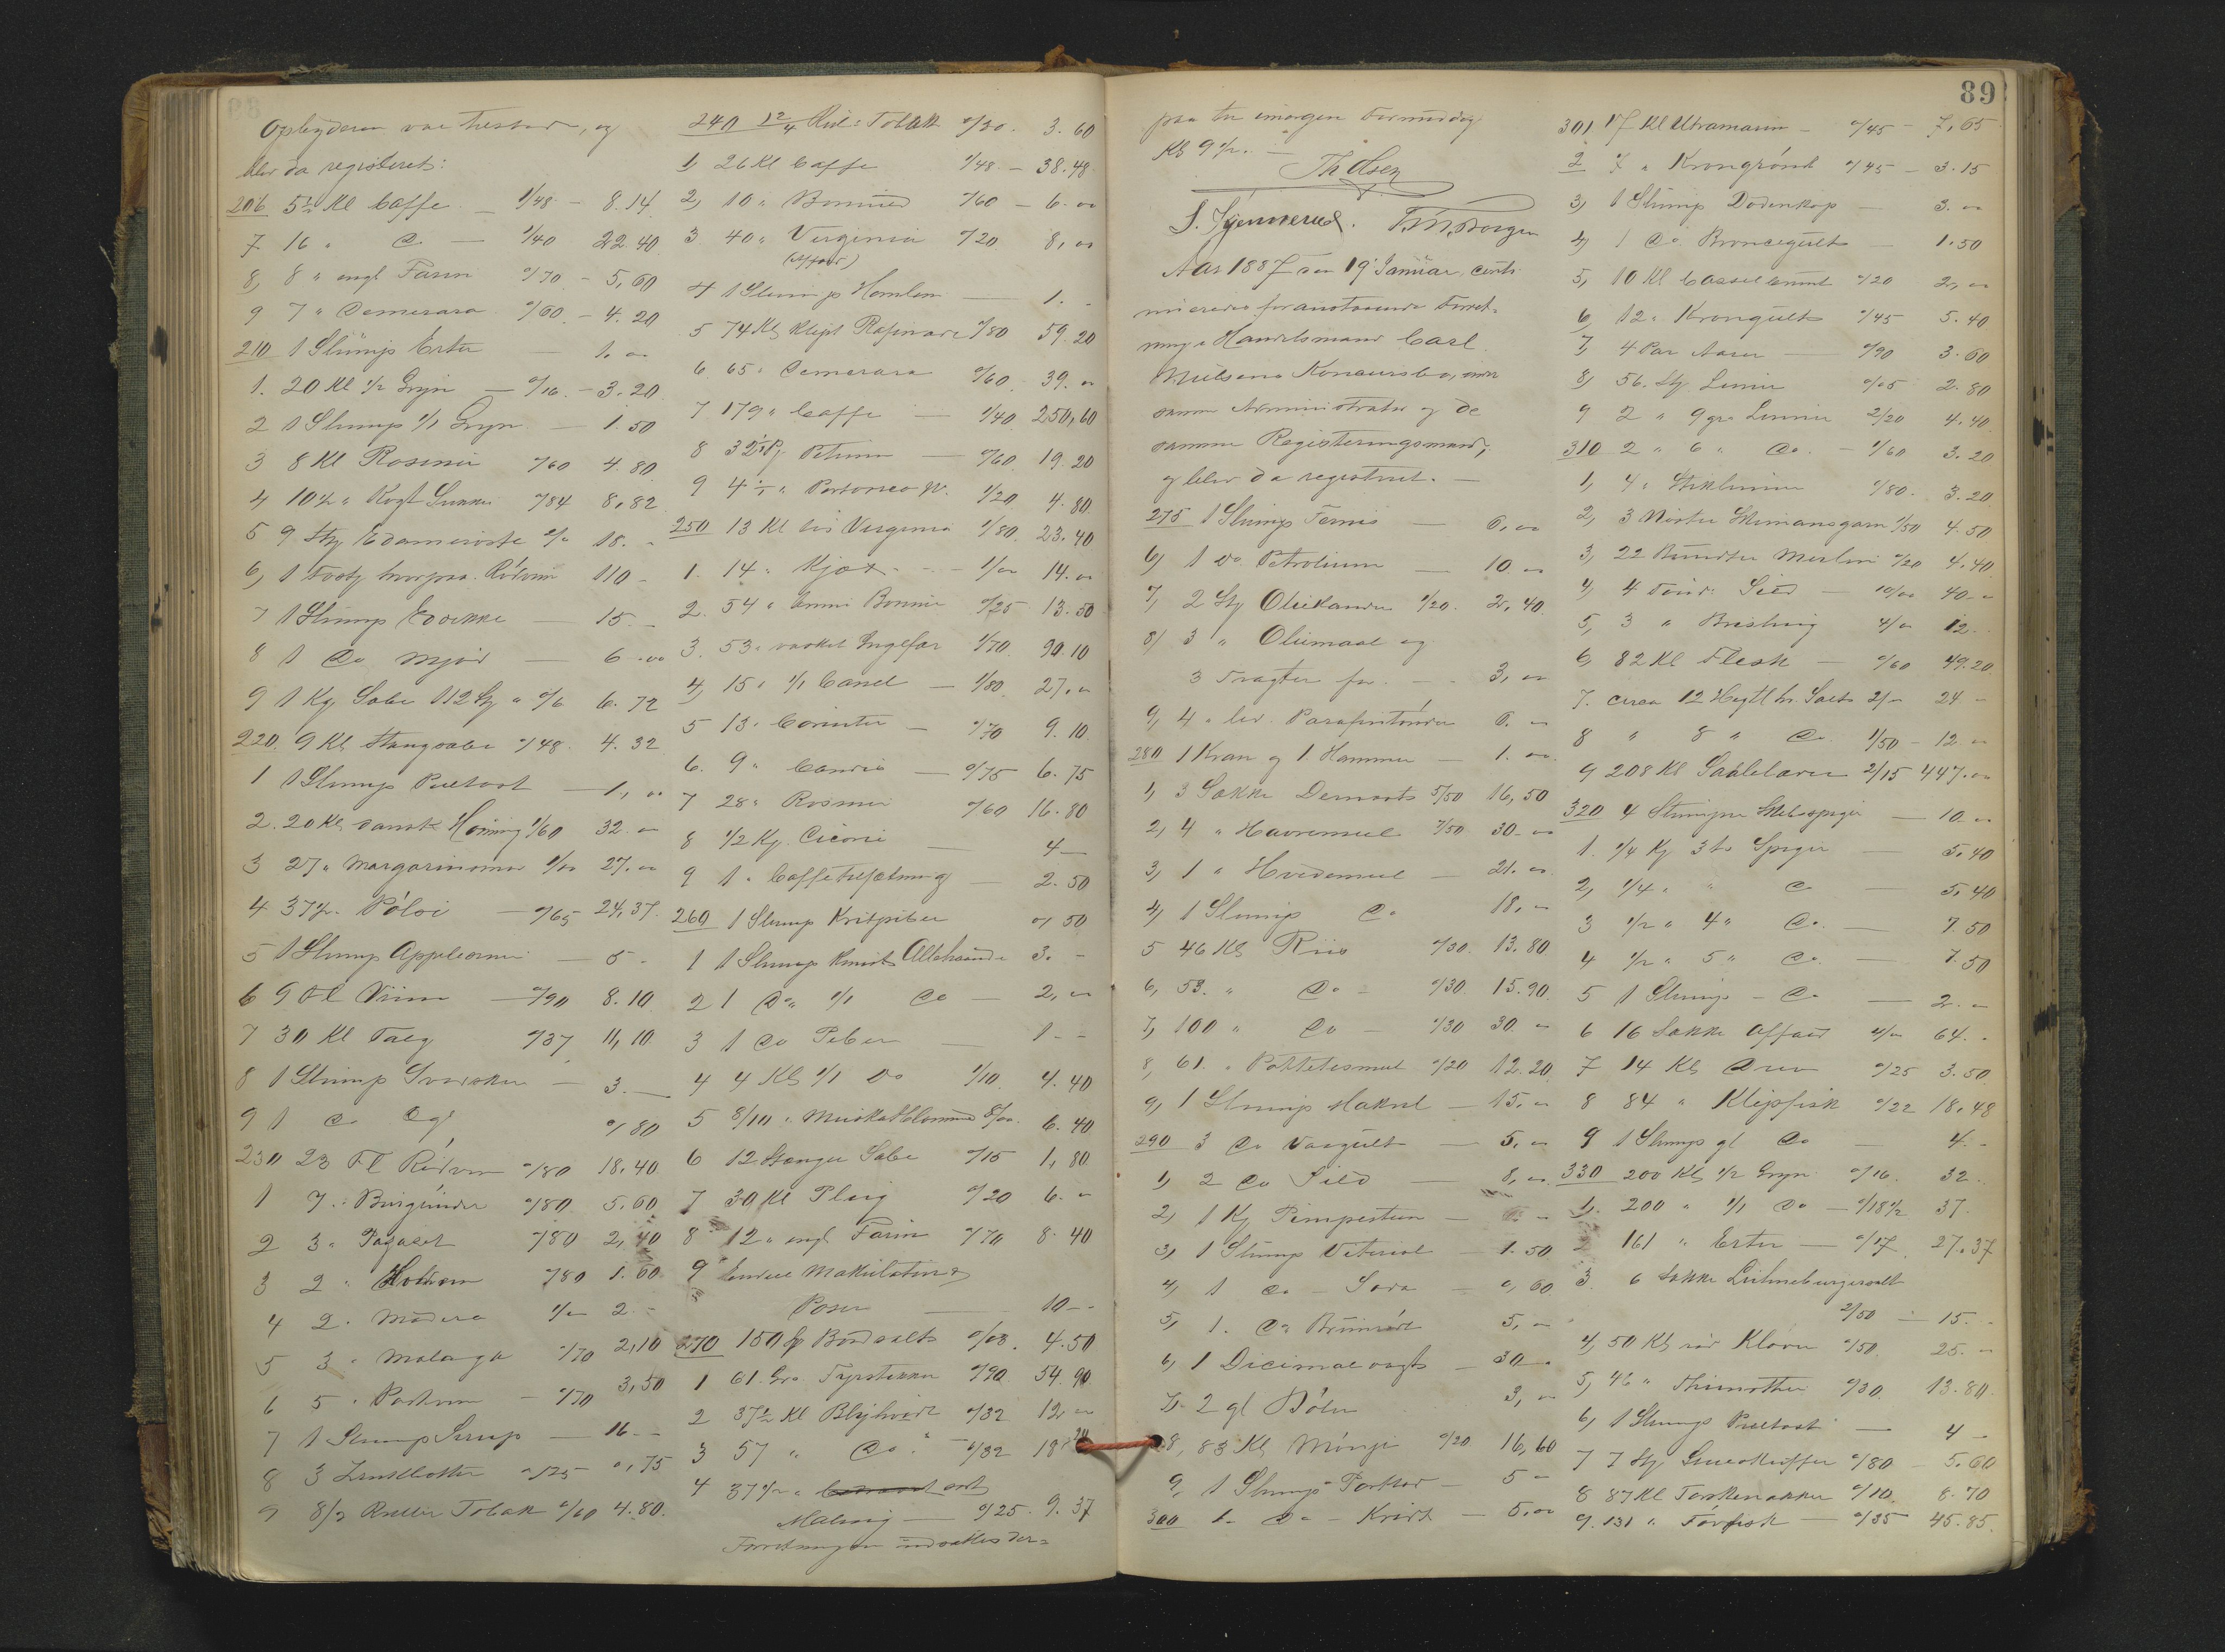 Opbyderen var tilstede, og
blev da registeret:
206 5½ Kl Caffe 1/48 - 8.14
7 16 " Do. - 1/40 22.40
8, 8 " engl Farin 0/70 - 5,60
9 7 " Demerara 0/60 - 4.20
210 1 Slump Erter - 1.00
1. 20 Kl ½ Gryn - 0/16 - 3.20
2 1 Slump 1/1 Gryn - 1.50
3 8 Kl Rosiner 0/60 4.80
4 10½ " Kogt Sukker 0/84 8,82
5 9 Stkr Edameroste 2/00 18.-
6, 1 Rødvin 110 -
7 1 Slump Eddikke - 15.-
8 1 Do Mjød - 6.00
9 1 Kg Sæbe 112 " 0/6 6.72
220 9 Kl Stangsæbe 0/48. 4.32
1 1 Slump Pultost - 1,00
2. 20 Kl dansk Honning 1/60 32.00
3 27 " Margarinsmør 1/00 27.00
4 37½ " Pølse - 0/65 24,37
5 1 Slump Appelsiner - 5-
6 9 Fl Viin - 0/90 8.10
7 30 Kl Talg 0/37 11,10
8 1 Slump Svedsker - 3.-
9 1 Do Do gl 0/80
230 23 Fl Rødvin 0/80 18.40
1 7 " Burgunder 0/80 5.60
2 3 " 0/80 2,40
3 2 " 0/80 1.60
4 2 " Madera 1/00 2.-
5 3 " Malaga 0/70 2,10
6 5 " Portvin - 0/70 3,50
7 1 Slump Sirup - 16.-
8 3 0/25 0,75
9 8/2 Ruller Tobak 0/60 4.80.
240 12/4 Rul: Tobak 0/30. 3.60
1, 26 Kl Caffe 1/48. - 38.48
2, 10 " Bomuld 0/60 - 6.00
3 40 " Virginia 0/20 8,00
(Affald)
4 1 Slump Humlen - 1.-
5 74 Kl klipt Rafinade 0/80 59.20
6 65 " Demerara 0/60 39.00
7 179 " Caffe - 1/40 250,60
8 32 Petum - 0/60 19.20
9 4 " Portorico 1/20 4.80
250 13 Kl løs Virginia 1/80 23.40
1. 14 " Kjøx - 1/00 14.00
2. 54 " Bønner 0/25 13.50
3. 53 " vasket Ingefær 1/70 90.10
4, 15 " 1/1 Canel - 1/80 27.00
5 13 " Corinter - 0/70 9.10
6. 9 " Candis - 0/75 6.75
7 28 " Rosiner 0/60 16.80
8 1/2 Kg. Cicorie - 4-
9 1 " Caffetilsætning - 2.50
260 1 Slump Kritpiber 0/50
1 1 Slump knust Allehaande 3.-
2 1 Do 1/1 Do - 2,00
3 1 Do Peber - 1.-
4 4 Kl 1/1 Do 1/10 4.40
5 8/10 " Muskatblomme 8/00 6.40
6 12 Stænger Sæbe 0/15 1,80
7 30 Kl 0/20 6.00
8 12 " engl Farin 0/70 8.40
9 Endeel Makulatur &
Poser - 10.-
270 150 Bordsalt 0/03. 4.50
1 61. Gro. Fyrstikker 0/90 54.90
2 37½ Kl Blyhvidt 0/32 12.00
3 57 " Do. 0/32 18
4 37½ " sort
Maling - 0/25 9.37
Forretningen udsættes der=
89
paa til imorgen Formiddag
Kl 9½. -
Th Olsen
S. Gjennerud. T.M. Borgen
Aar 1887 den 19 Januar, conti-
nueredes foranstaaende Forret=
ning i Handelsmand Carl
Nielsens Konkursbo, ved
samme Administrator og de
samme Registeringsmænd,
og blev da registreret. -
275 1 Slump Fernis - 6,00
6, 1 Do Petroleum - 10.00
7, 2 Stk Oliekander 1/20. 2,40
8, 3 " Oliemaal og
3 Tragter for - 3,00
9, 4 " led. Parafintønder 6.00
280 1 Kran og 1 Hammer - 1.00
1, 3 Sække 5/50 16,50
2, 4 " Havremeel 7/50 30.00
3, 1 " Hvedemeel - 21.00
4, 1 Slump Do 18,00
5 46 Kl Riis 0/30. 13.80
6, 53. " Do - 0/30. 15.90
7, 100 " Do - 0/30 30.00
8, 61. " Pottetesmeel 0/20 12.20
9, 1 Slump Makrel - 15.00
290 3 Do - 5.00
1, 2 Do Sild - 8,00
2, 1 Kg Pimpesten -
3, 1 Slump Viteriol - 1.50
4, 1 Do - Soda - 0,60
5, 1. Do Brunrødt 5,00
6, 1 Dicimalvægt - 30.00
7. 2 gl 3,00
8, 83 Kl Mønje 0/20 16,60
9, 1 Slump - 5-
300 1 - Do - Kridt - 5.00
301 17 Kl Ultramarin - 0/45 - 7,65
2 7 " Krongrønt 0/45 - 3.15
3, 1 Slump Dodenkop - 3.00
4, 1 Do. Broncegult - 1.50
5, 10 Kl Casselbrunt 0/20 2,00
6, 12 " Krongult 0/45 5.40
7, 4 Par Aarer - 0/90 3.60
8, 56. Stk. Liner 0/05 2.80
9 2 " 9 gr. Linner 2/20 4.40
310 2 " 6 " Do. - 1/60 3.20
1, 4 " Stiklinner 0/80. 3.20
2, 3 Nøster Skimansgarn 1/50 4.50
3, 22 Bundter Merlin 0/20 4.40
4, 4 Tønd: Sild - 10/00 40.00
5, 3 " Brisling 4/00 12.-
6, 82 Kl Flesk - 0/60 49.20
7. circa 12 Hegtl hv. Salt 2/00 24 -
8 " 8 " Do. 1/50 - 12.00
9 208 Kl Saalelæder 2/15 447.00
320 4 - 10.00
1. 1/4 Kg 3 to Spiger - 5.40
2, 1/4 " " Do - 5.40
3 1/2 " 4 " Do. - 7.50
4 1/2 " 5 " Do. - 7.50
5 1 Slump - Do - 2.00
6 16 Sække Affald 4/00 64.-
7 14 Kl 0/25 3.50
8 84 " Klipfisk 0/22 18.48
9 1 Slump gl Do - 4.-
330 200 Kl 1/2 Gryn 0/16. 32.-
1. 200 " 1/1 Do - 0/18½ 37.
2 161 " Erter - 0/17 27.37
3. 6 Sække Lüneburgersalt
2/50 - 15.-
4, 50 Kl rød Kløver 0/50 25.-
5, 46 " Thimothei 0/30 13.80
6, 1 Slump Pultost - 4-
7 7 Stk. 0/80 - 5.60
8 87 Kl 0/10 8.70
9. 131 " Tørfisk - 0/35 45.85.